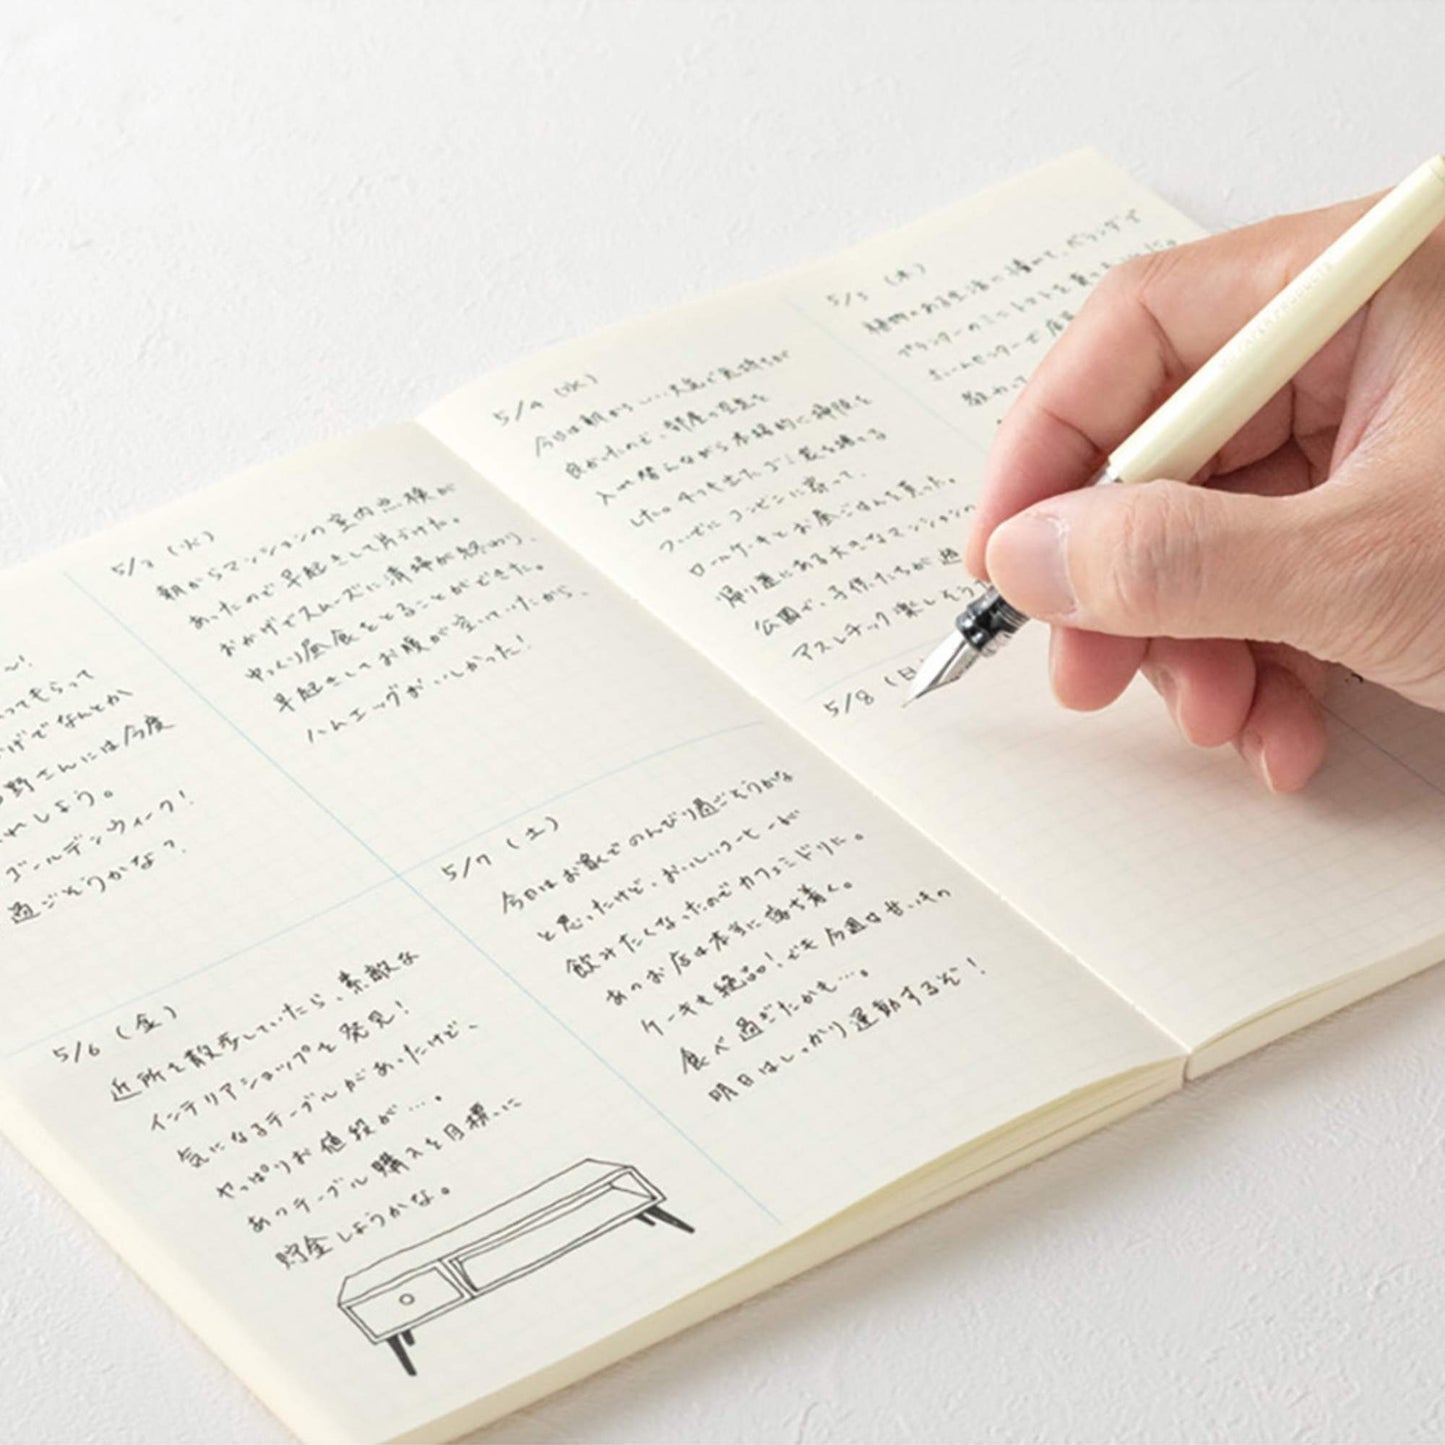 〜!
ってもらって
げでなんとか
野さんには今度
れしよう。
ゴールデンウィーク!
過ごそうかな?
5/3 (火)
朝からマンションの室内点検が
あったので早起きして片づけた。
おかげでスムーズに清掃が終わり、
ゆっくり昼食をとることができた。
早起きしてお腹が空いていたから、
ハムエッグがおいしかった!
5/6 (金)
近所を散歩していたら、素敵な
インテリアショップを発見!
気になるテーブルがあったけど、
やっぱりお値段が…。
あのテーブル購入を目標に
貯金しようかな。
5/7 (土)
今日はお家でのんびり過ごそうかな
と思ったけど、おいしいコーヒーが
飲みたくなったのでカフェミドリに。
あのお店は本当に落ち着く。
ケーキも絶品!でも今週は甘いもの
食べ過ぎたかも…。
明日はしっかり運動するぞ!
5/4 (水)
今日は朝からいい天気で気持ちが
良かったので、部屋の空気を
入れ替えながら本格的に掃除を
した。たくさん出たゴミ袋を捨てる
ついでにコンビニに寄って、
ロールケーキとお昼ごはんを買った。
帰り道にある大きなマンションの
公園で、子供たちが遊
アスレチック楽しそう
5/5 (木)
植物のある生活に憧れて、ベランダで
プランターのミニトマトを
ホームセンターで店
教わって
5/8 (日